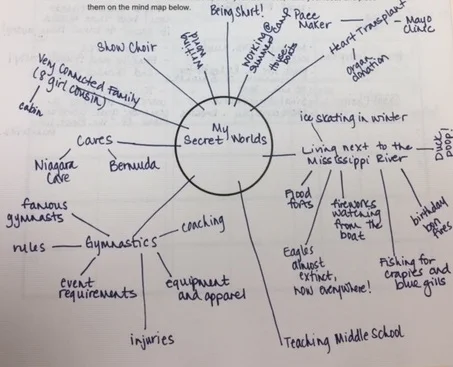 them on the mind map below.
Being Short!
Show Choir
Working @
summer camp
three
boats
Pace
Maker
Heart Transplant
Mayo
Clinic
organ
donation
Very Connected Family
(8 girl cousin)
cabin
My
Secret Worlds
Caves
Niagara
Cave
Bermuda
ice skating in winter
Living next to the
Mississippi River
Duck
poop!
Flood
forts
fireworks
watching
from the
boat
birthday
bon
fires
Eagles
almost
extinct,
now everywhere!
Fishing for
crapies and
blue gills
famous
gymnasts
rules
Gymnastics
coaching
event
requirements
equipment
and apparel
injuries
Teaching Middle School